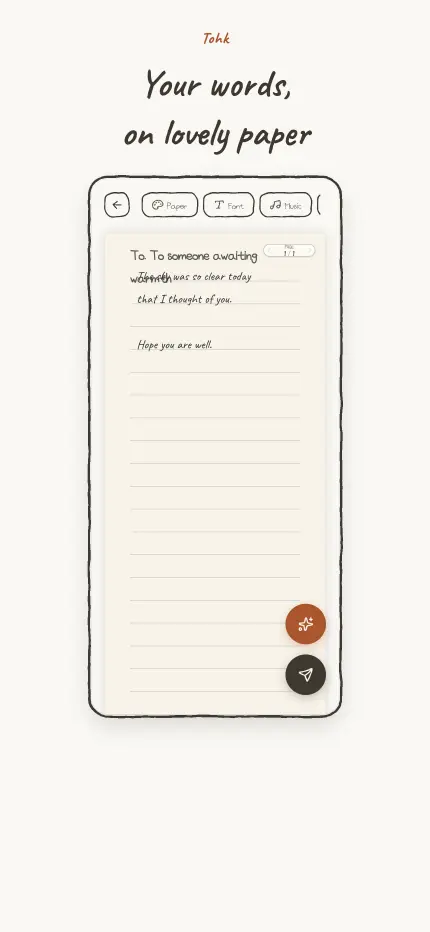 Tohk
Your words,
on lovely paper
Paper
Font
Music
To. To someone awaiting
warmth
PAGE
1 / 1
The sky was so clear today
that I thought of you.
Hope you are well.